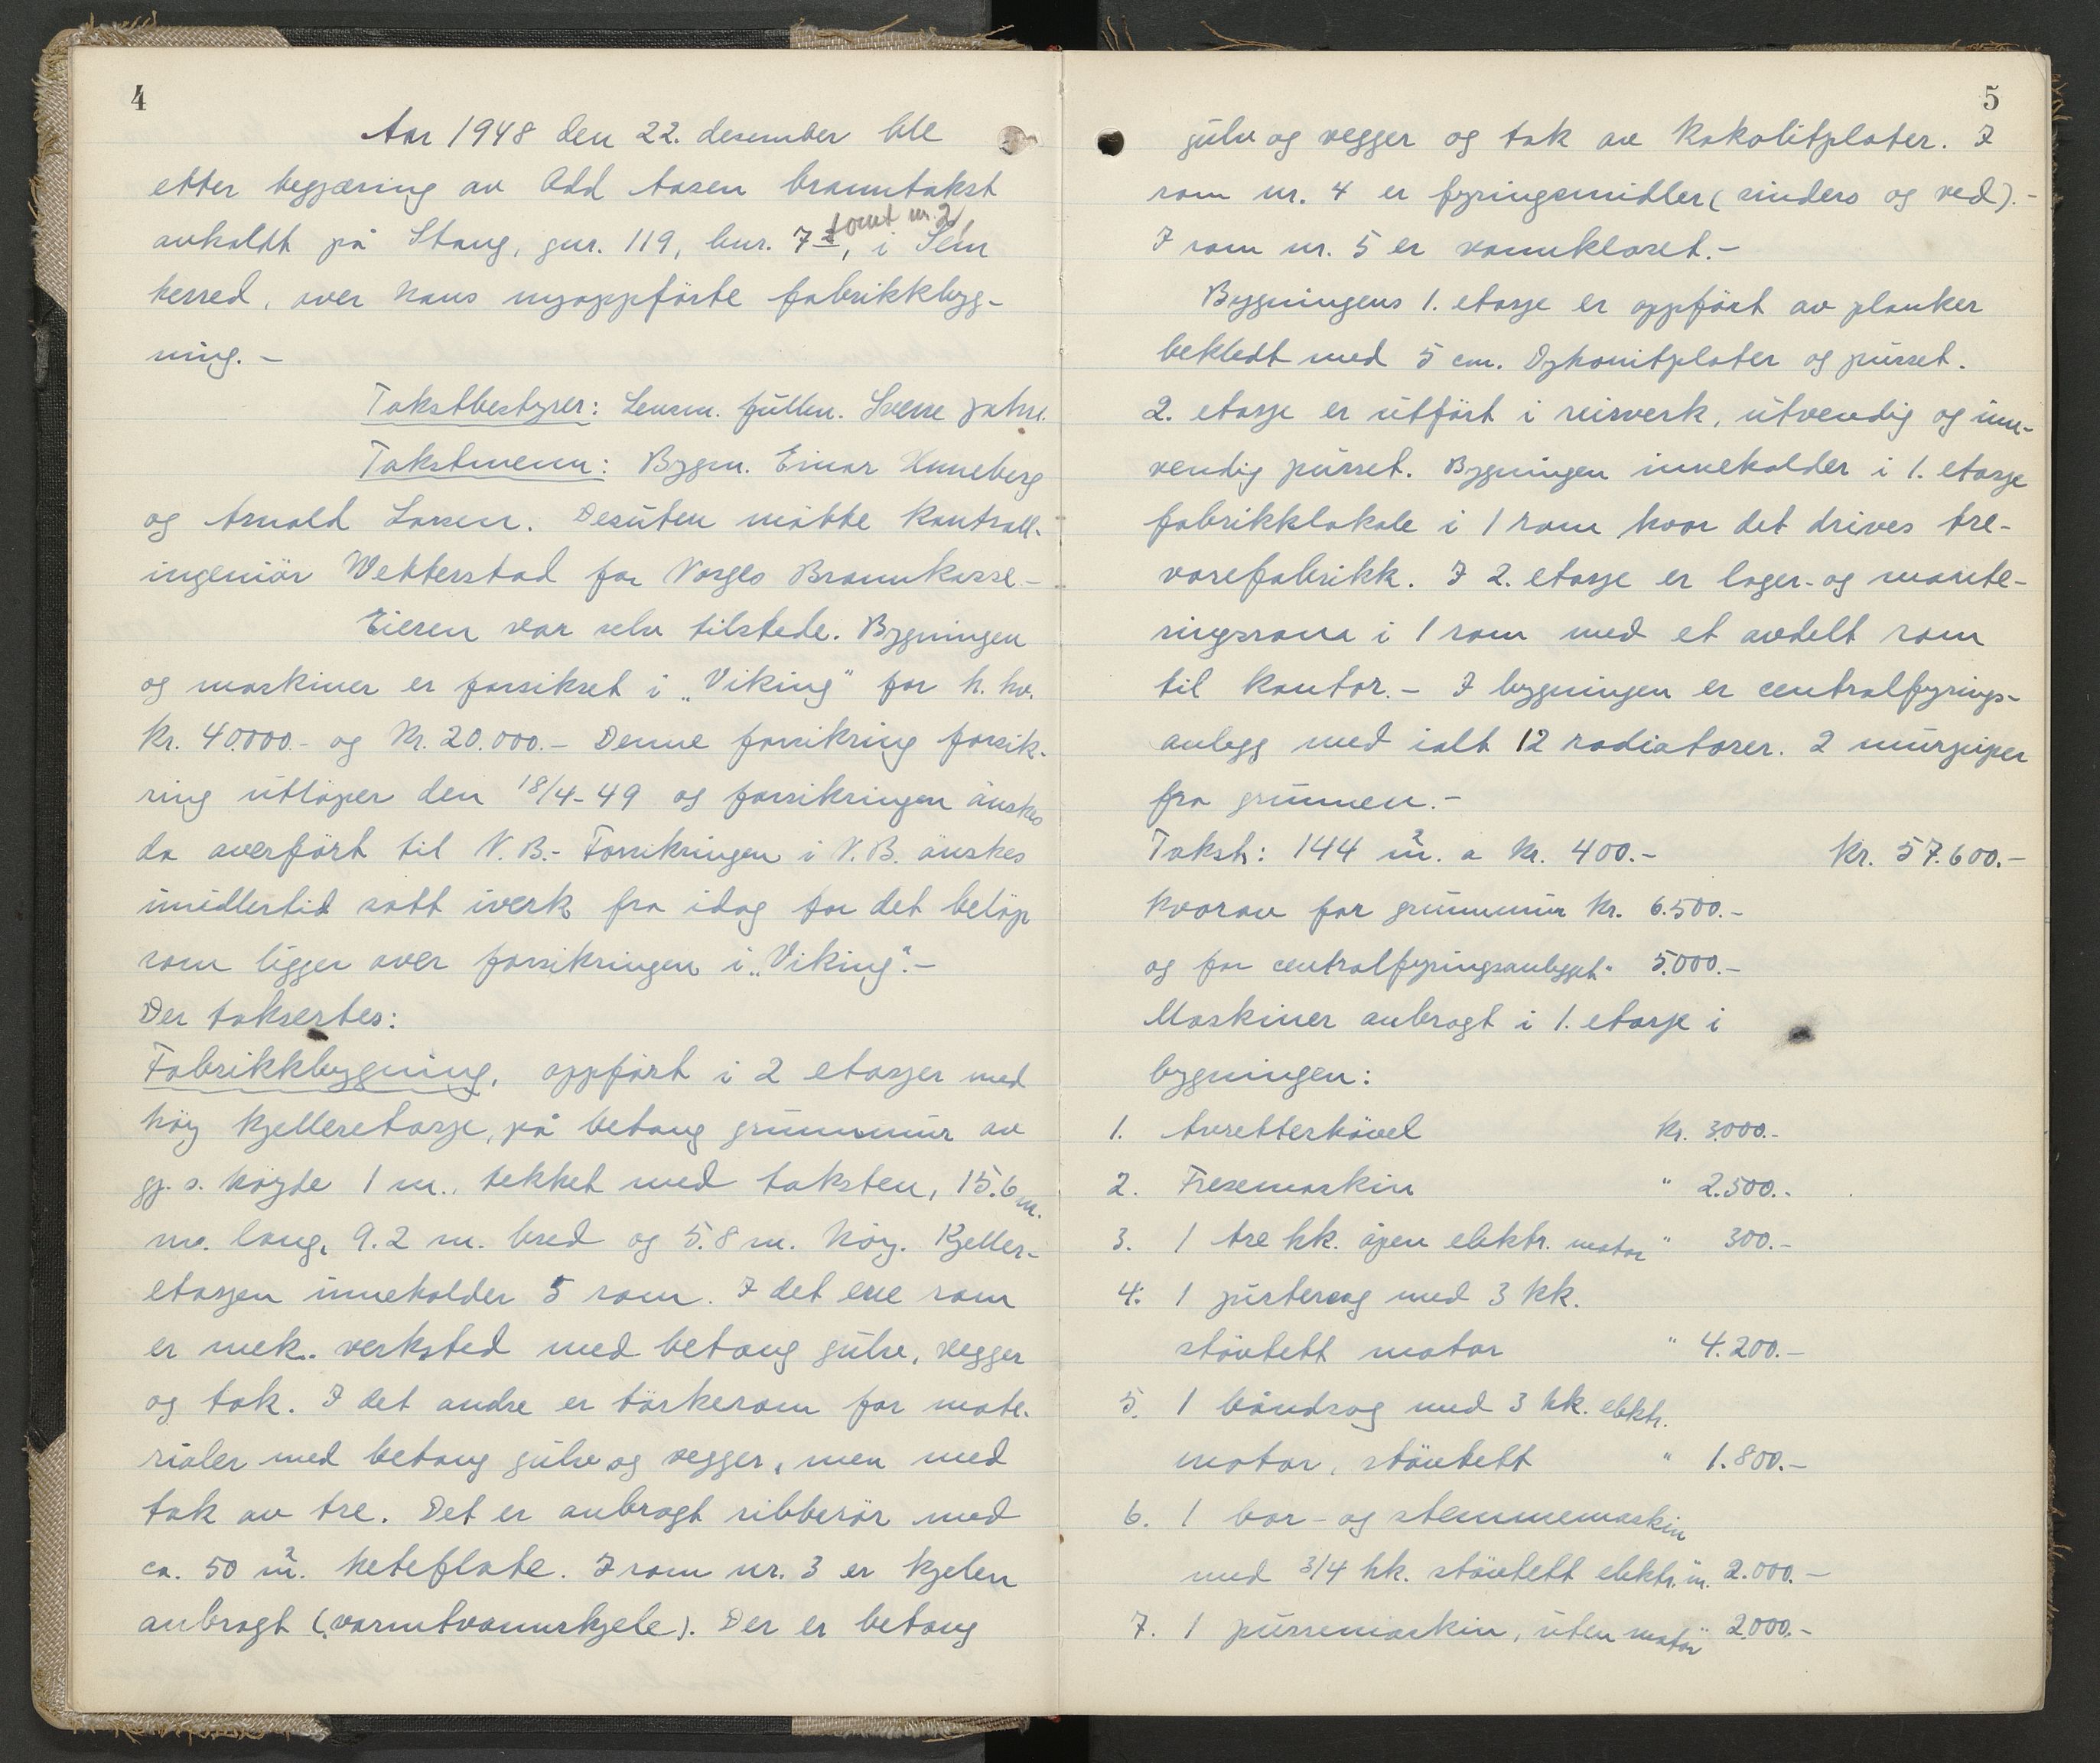 4
Aar 1948 den 22. desember ble
etter begjæring av Odd Aasen branntakst
tomt nr. 2,
avholdt på Stang, gnr. 119, bnr. 7, i Sem
herred, over hans nyoppförte fabrikkbyg-
ning. –
Takstbestyrer: Lensm. fullm. Sverre
Takstmenn: Bygm. Einar Unneberg
og Arnold Larsen. Desuten mötte kontroll-
ingeniör Wetterstad for Norges Brannkasse. –
Eieren var selv tilstede. Bygningen
og maskiner er forsikret i „Viking" for h. hv.
kr. 40.000.- og kr. 20.000.- Denne forsikring forsik-
ring utlöper den 18/4-49 og forsikringen önskes
da overfört til N.B.- Forsikringen i N.B. önskes
imidlertid satt iverk fra idag for det belöp
som ligger over forsikringen i „Viking". –
Der taksertes:
Fabrikkbygning, oppfört i 2 etasjer med
höy kjelleretasje, på betong grunnmur av
gj. s. höyde 1 m., tekket med taksten, 15.6 m.
m. lang, 9.2 m. bred og 5.8 m. höy. Kjeller-
etasjen inneholder 5 rom. I det ene rom
er mek. verksted med betong gulv, vegger
og tak. I det andre er törkerom for mate-
rialer med betong gulv og vegger, men med
tak av tre. Det er anbragt ribberör med
ca. 50 m². heteflate. I rom nr. 3 er kjelen
anbragt (varmtvannskjele). Der er betong
5
gulv og vegger og tak av Kokolitplater. I
rom nr. 4 er fyringsmidler (sinders og ved). –
I rom nr. 5 er vannklosett. –
Bygningens 1. etasje er oppfört av planker
bekledt med 5 cm. Dyhonitplater og pusset.
2. etasje er utfört i reisverk, utvendig og inn-
vendig pusset. Bygningen inneholder i 1. etasje
fabrikklokale i 1 rom hvor det drives tre-
varefabrikk. I 2. etasje er lager- og monte-
ringsrom i 1 rom med et avdelt rom
til kontor. – I bygningen er centralfyrings-
anlegg med ialt 12 radiatorer. 2 murpiper
fra grunnen. –
Takst: 144 m². a kr. 400.- kr. 57.600.-
hvorav for grunnmur kr. 6.500.-
og for centralfyringsanlegget " 5.000.-
Maskiner anbragt i 1. etasje i
bygningen:
1. Avretterhövel kr. 3.000.-
2. Fresemaskin " 2.500.-
3. 1 tre hk. åpen elektr. motor " 300.-
4. 1 justersag med 3 hk.
stövtett motor " 4.200.-
5. 1 båndsag med 3 hk. elektr.
motor, stövtett " 1.800.-
6. 1 bor- og stemmemaskin
med 3/4 hk. stövtett elektr. m. 2.000.-
7. 1 pussemaskin, uten motor " 2.000.-